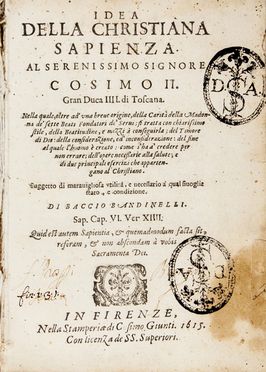 IDEA
DELLA CHRISTIANA
SAPIENZA.
AL SERENISSIMO SIGNORE
COSIMO II.
Gran Duca IIII. di Toscana.
Nella quale, oltre ad vna breue origine, della Carità della Madon-
na de' sette Beati Fondatori de' Serui: si tratta con chiarissimo
stile, della Beatitudine, e mezzi à conseguirla: del Timore
di Dio: della consideratione, ed inconsideratione: del fine
al quale l'huomo è creato: come s'ha da' credere per
non errare; dell'opere necessarie alla salute; e
di due principali esercitij che apparten-
gano al Christiano.
Suggetto di marauigliosa vtilità, e necessario à qual si uoglia
stato, e condizione.
DI BACCIO BANDINELLI.
Sap. Cap. VI. Ver. XIIII.
Quid est autem Sapientia, & quemadmodum facta sit
referam, & non abscondam à vobis
Sacramenta Dei.
IN FIRENZE,
Nella Stamperia di Cosimo Giunti. 1615.
Con licenza de' SS. Superiori.